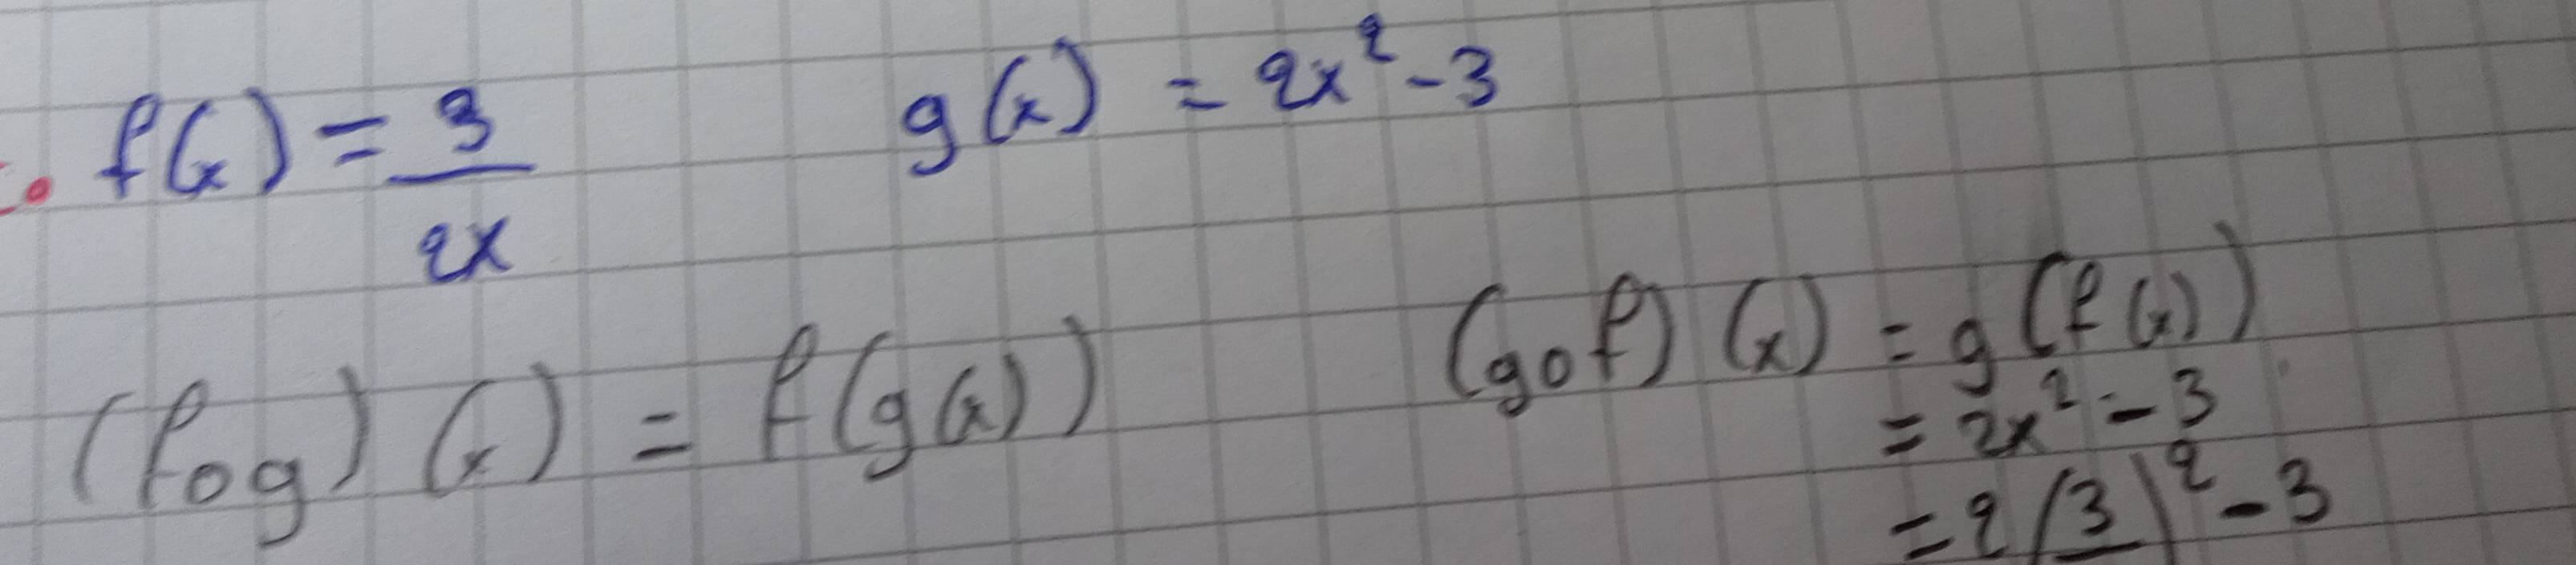 f(x) = 3/2x    g(x) = 2x² - 3
(fog) (x) = f(g(x))    (gof) (x) = g(f(x))
= 2x² - 3
= 2(3)² - 3